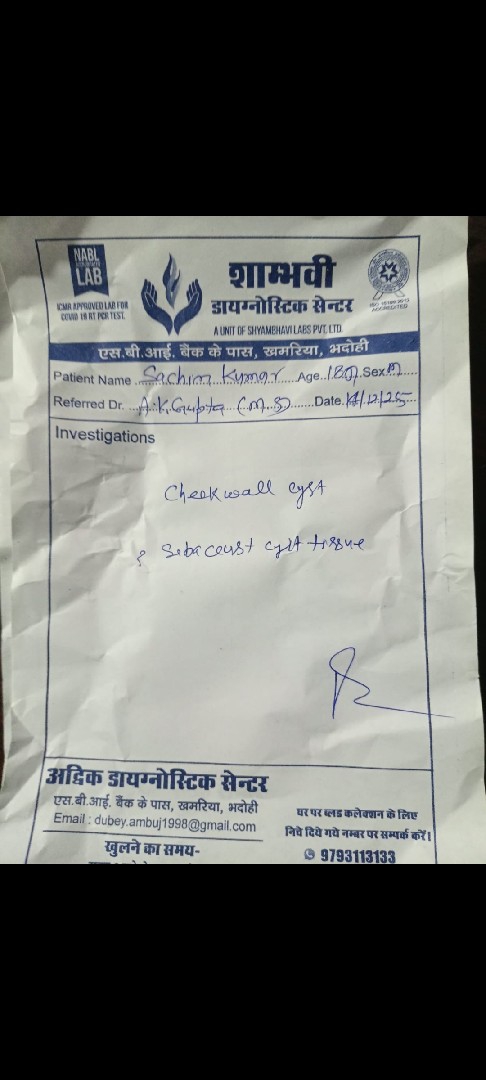 NABL
LAB
ICMR APPROVED LAB FOR
COVID 19 RT PCR TEST.
शाम्भवी
डायग्नोस्टिक सेन्टर
A UNIT OF SHYAMBHAVI LABS PVT. LTD.
ACCREDITED
एस.बी.आई. बैंक के पास, खमरिया, भदोही
Patient Name Sachim Kumar Age 18 Sex M
Referred Dr. A.K. Gupta (M.S) Date. /12/25
Investigations
Cheek wall cyst
Sebaceust cyst tissue
अद्विक डायग्नोस्टिक सेन्टर
एस.बी.आई. बैंक के पास, खमरिया, भदोही
Email : dubey.ambuj1998@gmail.com
खुलने का समय-
घर पर ब्लड कलेक्शन के लिए
निचे दिये गये नम्बर पर सम्पर्क करें।
9793113133